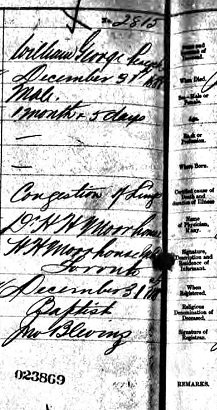 No. 2815
William George Joseph
December 31st
Male.
1 month & 5 days
—
—
Congestion of Lungs
Dr H H Moorhouse
H H Moorhouse
Toronto
December 31
Baptist
Jno Blevins
023869
When Died.
Male or Female.
Age.
Rank or Profession.
Where Born.
Certified cause of Death and duration of Illness
Name of Physician,
Signature, Description and Residence of Informant.
When Registered.
Religious Denomination of Deceased.
Signature of Registrar.
REMARKS.